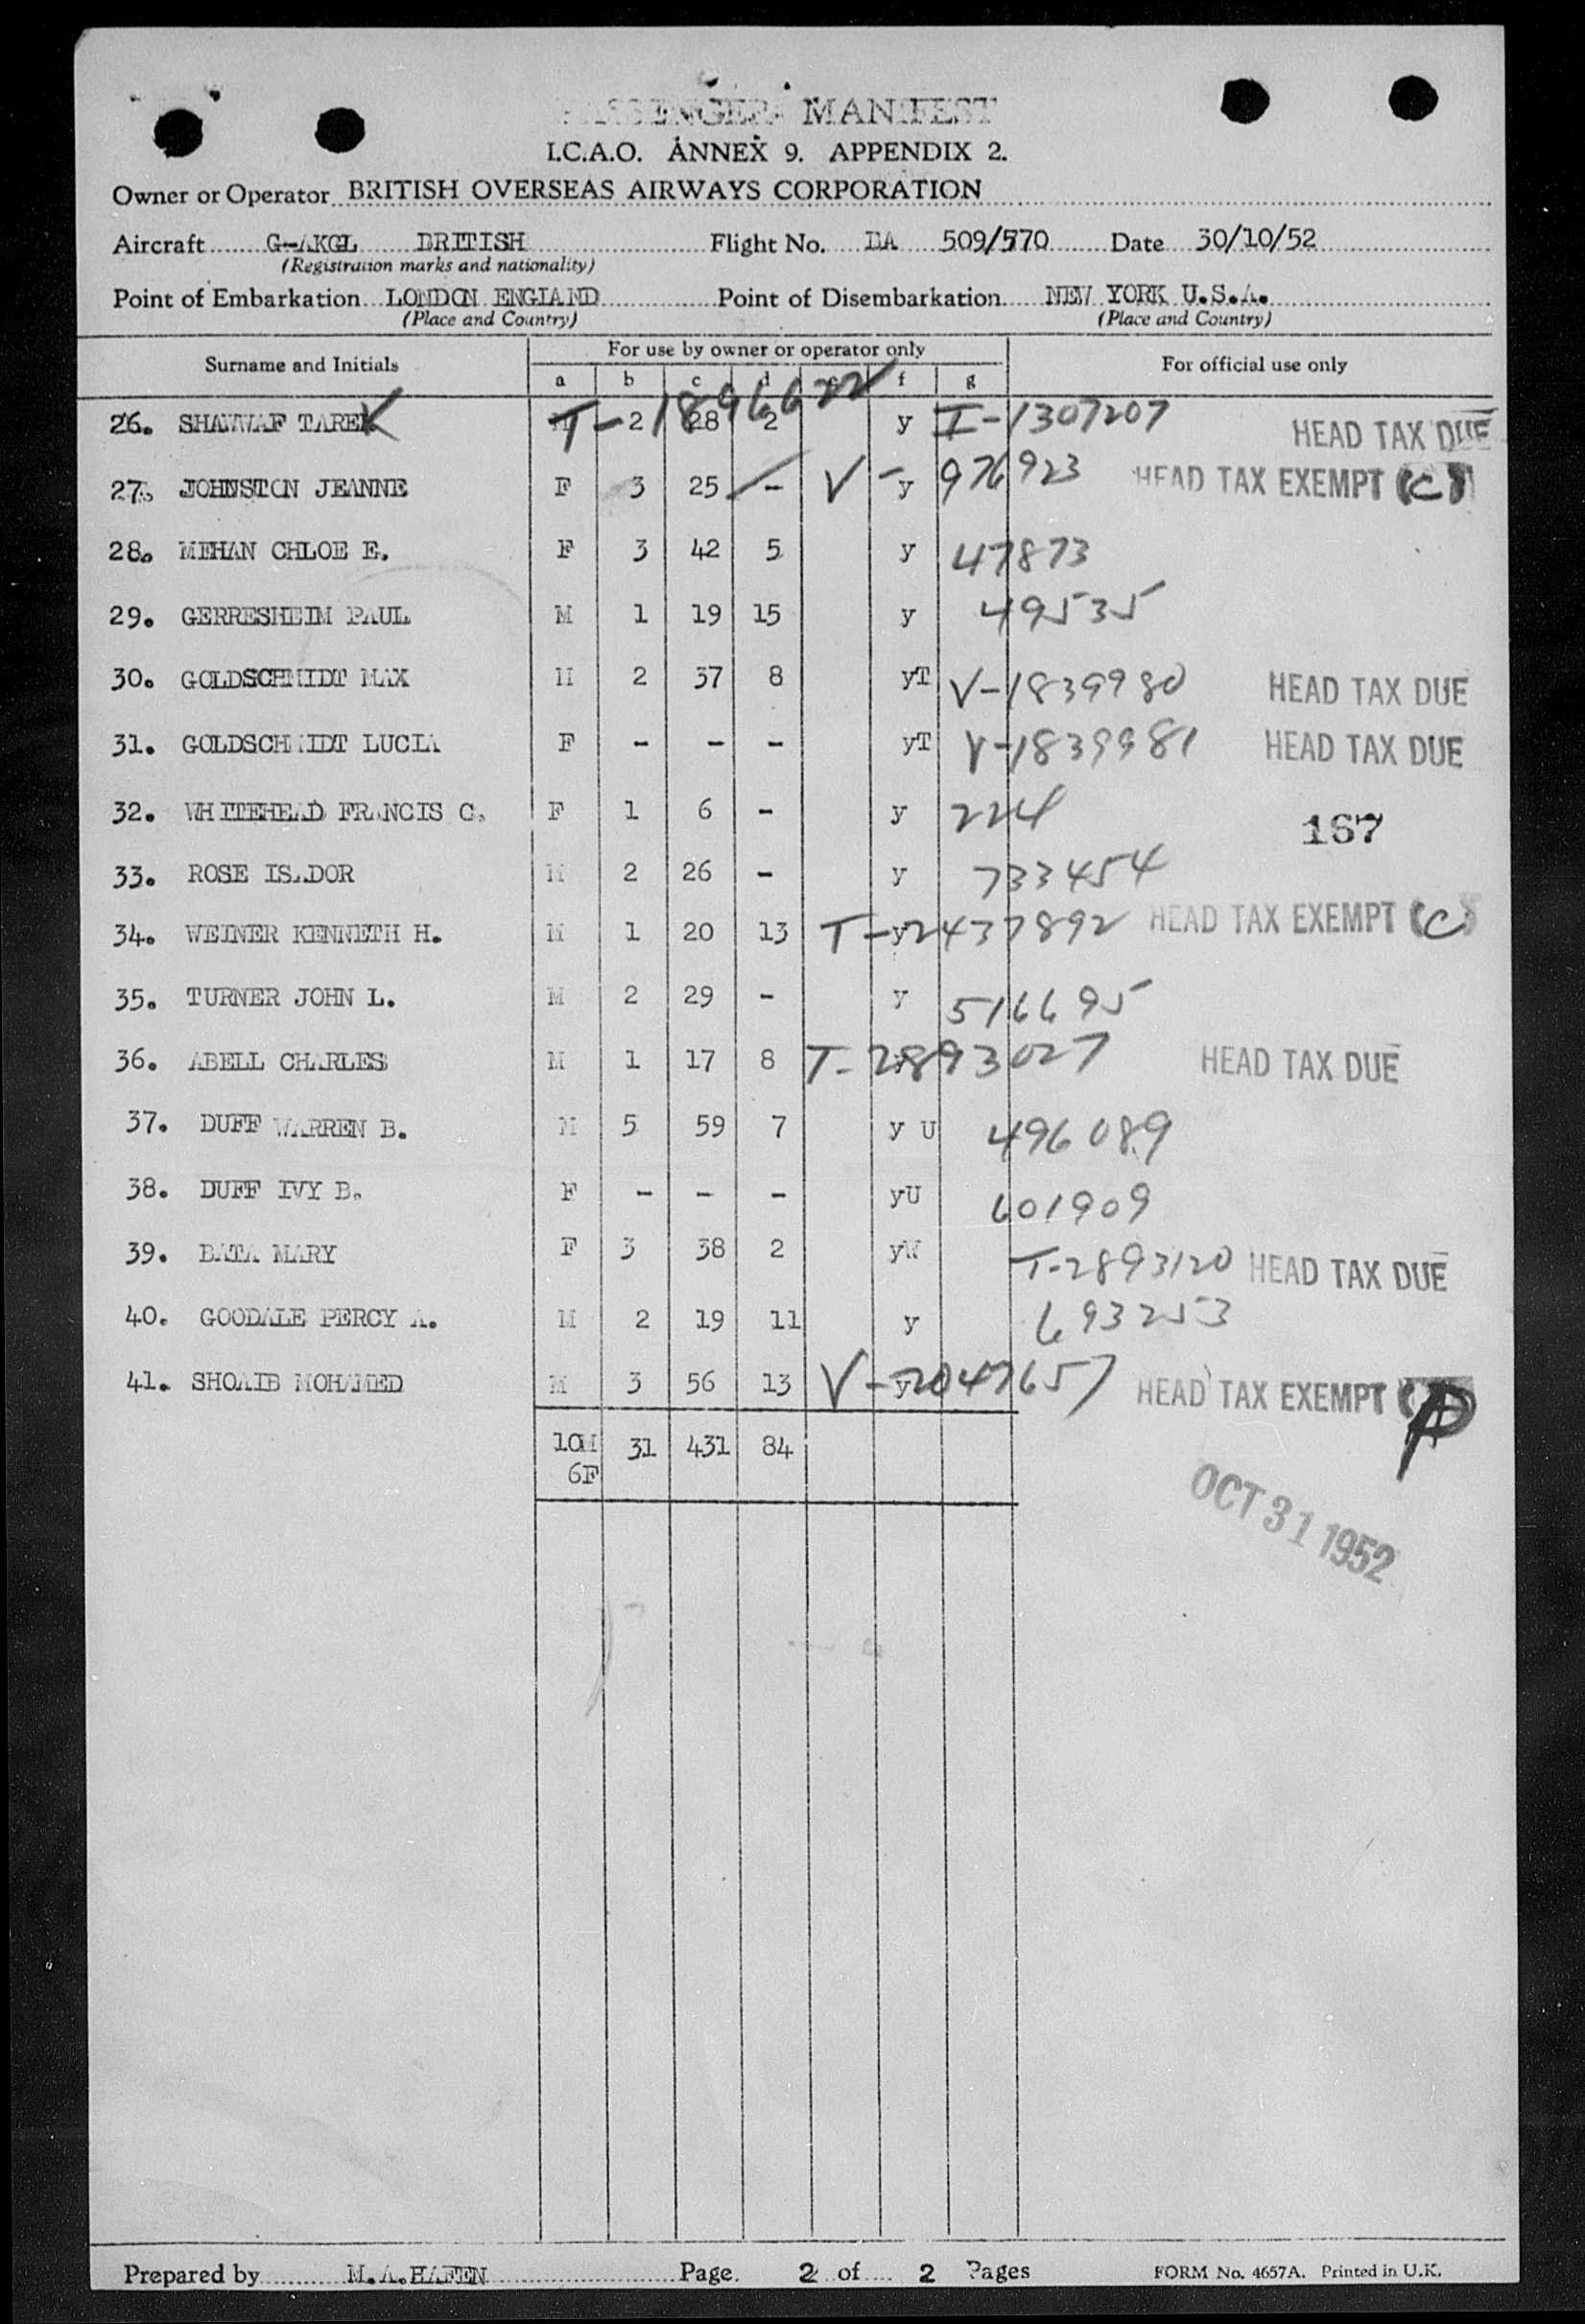 PASSENGER MANIFEST
I.C.A.O. ANNEX 9. APPENDIX 2.
Owner or Operator BRITISH OVERSEAS AIRWAYS CORPORATION
Aircraft G-AKGL BRITISH Flight No. BA 509/570 Date 30/10/52
(Registration marks and nationality)
Point of Embarkation LONDON ENGLAND Point of Disembarkation NEW YORK U.S.A.
(Place and Country) (Place and Country)
Surname and Initials For use by owner or operator only For official use only
a b c d e f g
T-1896622
26. SHAWWAF TAREK M 2 28 2 y I-1307207 HEAD TAX DUE
27. JOHNSTON JEANNE F 3 25 - V-976923 y HEAD TAX EXEMPT (C)
28. MEHAN CHLOE E. F 3 42 5 y 47873
29. GERRESHEIM PAUL M 1 19 15 y 49535
30. GOLDSCHMIDT MAX M 2 37 8 yT V-1839980 HEAD TAX DUE
31. GOLDSCHMIDT LUCIA F - - - yT V-1839981 HEAD TAX DUE
32. WHITEHEAD FRANCIS C. F 1 6 - y 224
167
33. ROSE ISADOR M 2 26 - y 733454
34. WEINER KENNETH H. M 1 20 13 y T-2437892 HEAD TAX EXEMPT (C)
35. TURNER JOHN L. M 2 29 - y 516695
36. ABELL CHARLES M 1 17 8 T-2893027 HEAD TAX DUE
37. DUFF WARREN B. M 5 59 7 y U 496089
38. DUFF IVY B. F - - - yU 601909
39. BATA MARY F 3 38 2 yW T-2893120 HEAD TAX DUE
40. GOODALE PERCY A. M 2 19 11 y 693253
41. SHOAIB MOHAMED M 3 56 13 y V-2047657 HEAD TAX EXEMPT
10M 31 431 84
6F
OCT 31 1952
Prepared by M.A.HAFEN Page 2 of 2 Pages FORM No. 4657A. Printed in U.K.